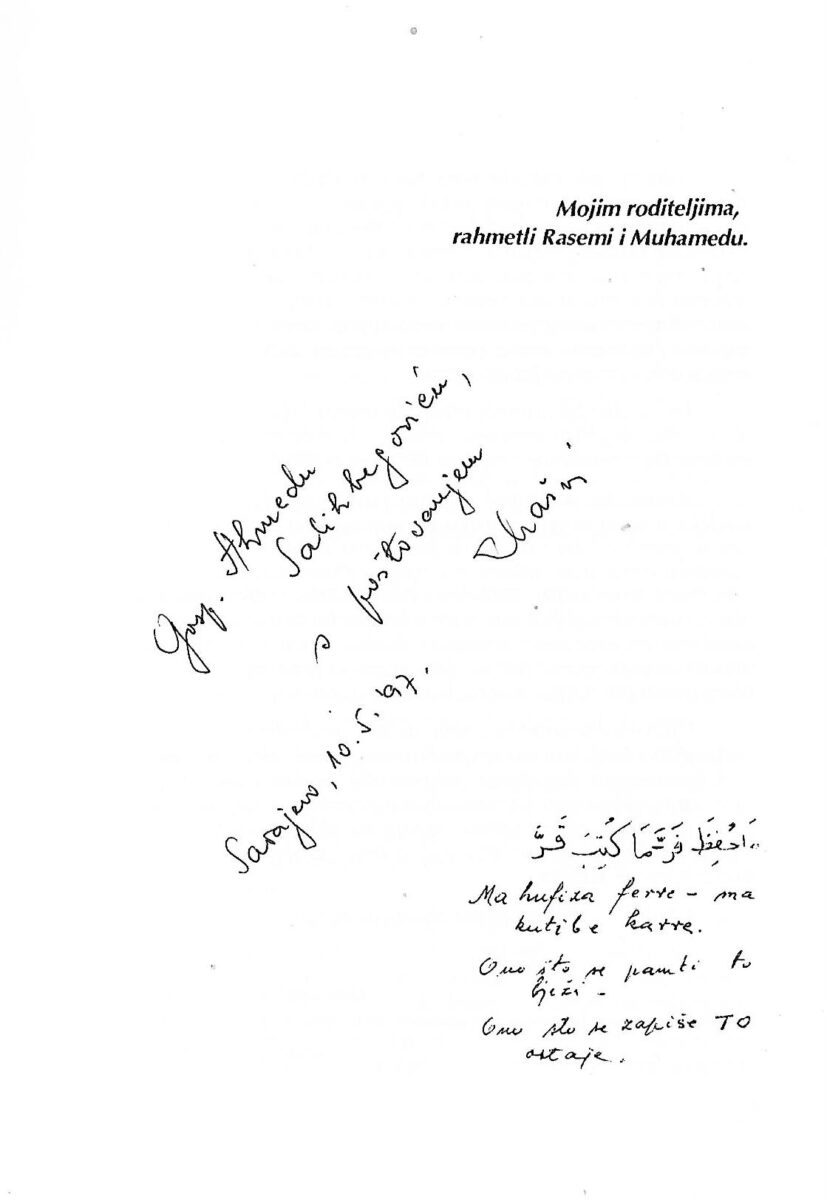 Mojim roditeljima,
rahmetli Rasemi i Muhamedu.
Gosp. Ahmedu
Salihbegoviću,
s poštovanjem
Sarajevo, 10. 5. '97.
مَا حُفِظَ فَرَّ مَا كُتِبَ قَرَّ
Ma hufiza ferre - ma
kutibe karre.
Ono što se pamti to
bježi -
Ono što se zapiše TO
ostaje.